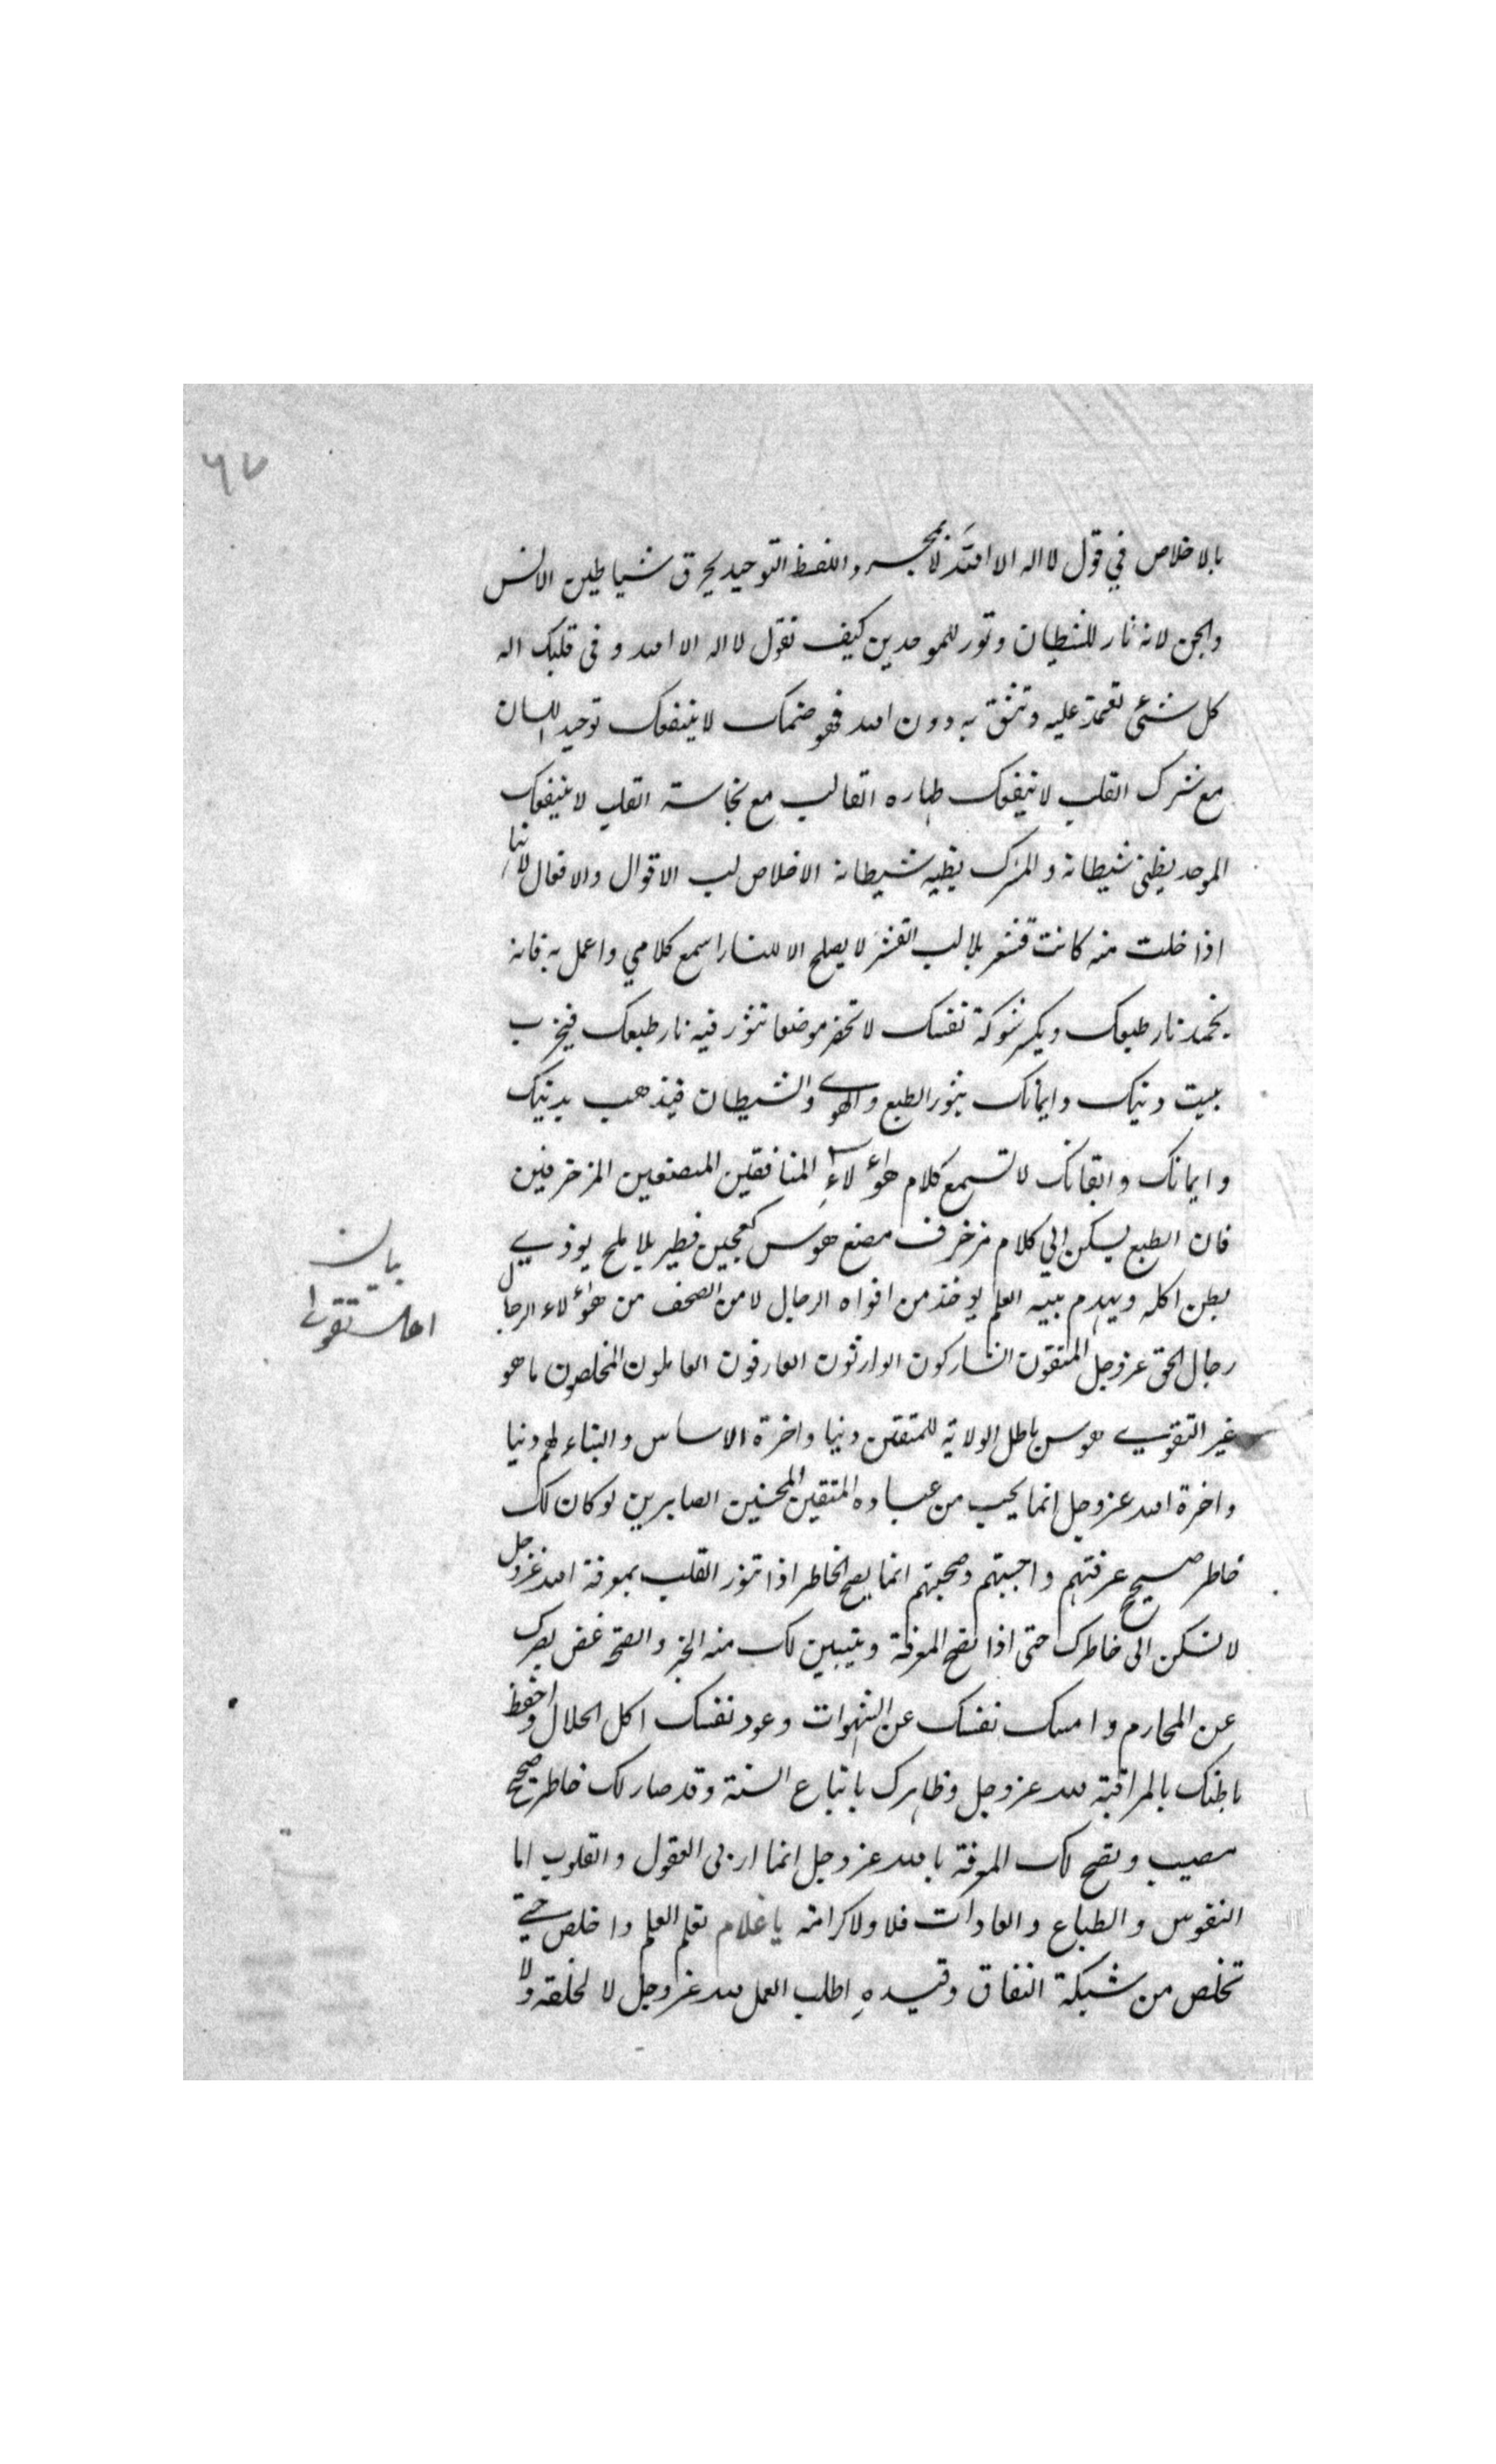 ٦٧
بالاخلاص في قول لا اله الا الله لا بمجرد اللفظ التوحيد يحرق شياطين الانس
والجن لانه نار للشيطان ونور للموحدين كيف تقول لا اله الا الله و فى قلبك اله
كل شئ تعتمد عليه وتثق به دون الله فهو صنمك لا ينفعك توحيد اللسان
مع شرك القلب لا ينفعك طهاره القالب مع نجاسة القلب لا ينفعك
الموحد يظنى شيطانه و المشرك يظنيه شيطانه الاخلاص لب الاقوال والافعال لانها
اذا خلت منه كانت قشر بلا لب القشر لا يصلح الا للنار اسمع كلامي واعمل به فانه
يخمد نار طبعك ويكسر شوكة نفسك لا تحضر موضعا تثور فيه نار طبعك فيخرب
بيت دينك وايمانك يثور الطبع والهوى والشيطان فيذهب بدينك
وايمانك وايقانك لا تسمع كلام هؤلاء المنافقين المتصنعين المزخرفين
فان الطبع يسكن الي كلام مزخرف مصنع هوس كعجين فطير بلا ملح يوذي
بيان
اهل تقوى
بطن اكله ويهدم بيته العلم يوخذ من افواه الرجال لا من الصحف من هؤلاء الرجال
رجال الحق عزوجل المتقون التاركون الوارثون العارفون العاملون المخلصون ما هو
غير التقوى هوس باطل الولاية للمتقين دنيا واخرة الاساس والبناء لهم دنيا
واخرة الله عزوجل انما يحب من عباده المتقين المحسنين الصابرين لو كان لك
خاطر صحيح عرفتهم واحببتهم وصحبتهم انما يصح الخاطر اذا تنور القلب بمعرفة الله عزوجل
لا تسكن الى خاطرك حتى اذا تصح المعرفة ويتبين لك منه الخير والصحة غض بصرك
عن المحارم وامسك نفسك عن الشهوات وعود نفسك اكل الحلال واحفظ
باطنك بالمراقبة لله عزوجل وظاهرك باتباع السنة وقد صار لك خاطر صحيح
مصيب وتصح لك المعرفة بالله عزوجل انما اربى العقول والقلوب اما
النفوس والطباع والعادات فلا ولا كرامة يا غلام تعلم العلم واخلص حتى
تخلص من شبكة النفاق وقيده اطلب العمل لله عزوجل لا لخلقه ولا